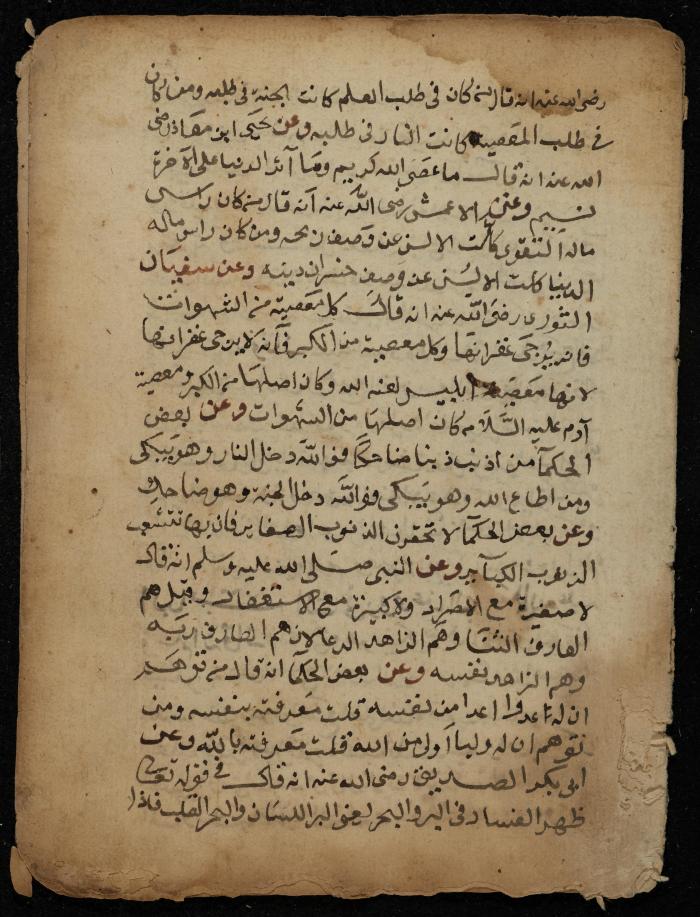 رضي الله عنه انه قال من كان فى طلب العلم كانت الجنة فى طلبه ومن كان
فى طلب المعصية كانت النار فى طلبه وعن يحيى ابن معاذ رضى
الله عنه انه قال ما عصى الله كريم وما آثر الدنيا على الآخرة
لئيم وعن الاعمش رضى الله عنه انه قال من كان راس
ماله التقوى كلت الالسن عن وصف ربحه ومن كان راس ماله
الدنيا كلت الالسن عن وصف خسران دينه وعن سفيان
الثورى رضى الله عنه انه قال كل معصية من الشهوات
فانه يرجى غفرانها وكل معصية من الكبر فانه لا يرجى غفرانها
لانها معصية ابليس لعنه الله وكان اصلها من الكبر ومعصية
آدم عليه السلام كان اصلها من الشهوات وعن بعض
الحكما من اذنب ذنبا ضاحكا فوالله دخل النار وهو يبكى
ومن اطاع الله وهو يبكى فوالله دخل الجنة وهو ضاحك
وعن بعض الحكما لا تحقرن الذنوب الصغاير فان بها تتشعب
الذنوب الكبآير وعن النبى صلى الله عليه وسلم انه قال
لا صغيرة مع الاصرار ولا كبيرة مع الاستغفار وقيل هم
العارف الثنا وهم الزاهد الدعا لان هم العارف ربه
وهم الزاهد نفسه وعن بعض الحكما انه قال من توهم
ان له اعدا من نفسه قلت معرفته بنفسه ومن
توهم ان له وليا اولى من الله قلت معرفته بالله وعن
ابى بكر الصديق رضى الله عنه انه قال فى قوله تعالى
ظهر الفساد فى البر والبحر البر اللسان والبحر القلب فاذا